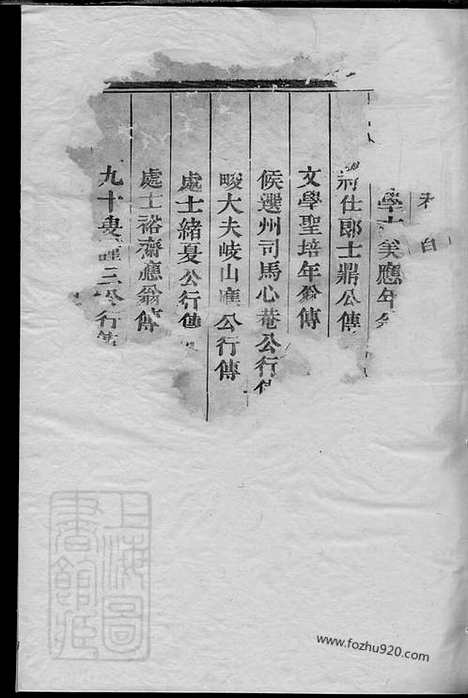 未
學士美應年
仕郎士鼎公傳
文學聖培年翁傳
候選州司馬心菴公行
畯大夫岐山應公行傳
處士緒夏公行傳
處士裕齋應翁傳
九十叟 三公行傳
上海圖書館藏
www.fozhu920.com